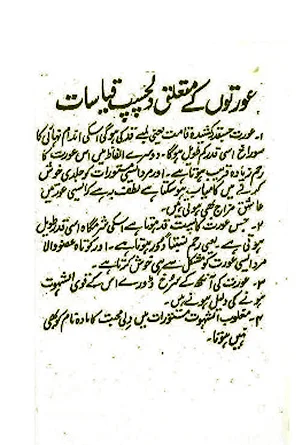 عورتوں کے متعلق دلچسپ قیاسات
۱۔ عورت جسقدر کشیدہ قامت یعنی لمبے قد کی ہوگی اسکی اندام نہانی کا
سوراخ اسی قدر کم طویل ہوگا۔ دوسرے الفاظ میں اس عورت کا
رحم زیادہ قریب ہوتا ہے۔ اور مرد ایسی عورت کو جلدی خوش
کرنے میں کامیاب ہو سکتا ہے لطف یہ ہے کہ ایسی عورتیں
عاشق مزاج بھی ہوتی ہیں۔
۲۔ جس عورت کا قد پست ہوتا ہے اسکی شرمگاہ اسی قدر طویل
ہوتی ہے۔ یعنی رحم نسبتاً دور ہوتا ہے۔ اور کوتاہ عضو والا
مرد ایسی عورت کو مشکل سے ہی خوش کرتا ہے۔
۳۔ عورت کی آنکھ کے سرخ ڈورے اس کے قوی الشہوت
ہونے کی دلیل ہوتے ہیں۔
۴۔ مغلوب الشہوت مستورات میں دلی محبت کا مادہ نام کو بھی
نہیں ہوتا۔